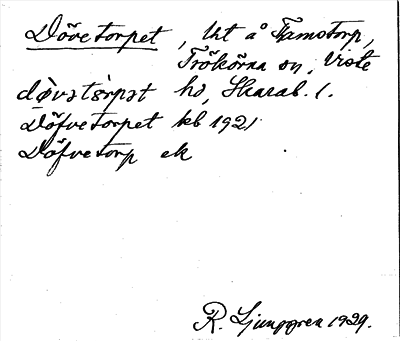 Dövetorpet, lht å Famstorp,
Trökörna sn, Viste
dø̀vətɵ̀rpət hd, Skarab. l.
Döfvetorpet kb 1921
Döfvetorp ek
R. Ljunggren 1929.